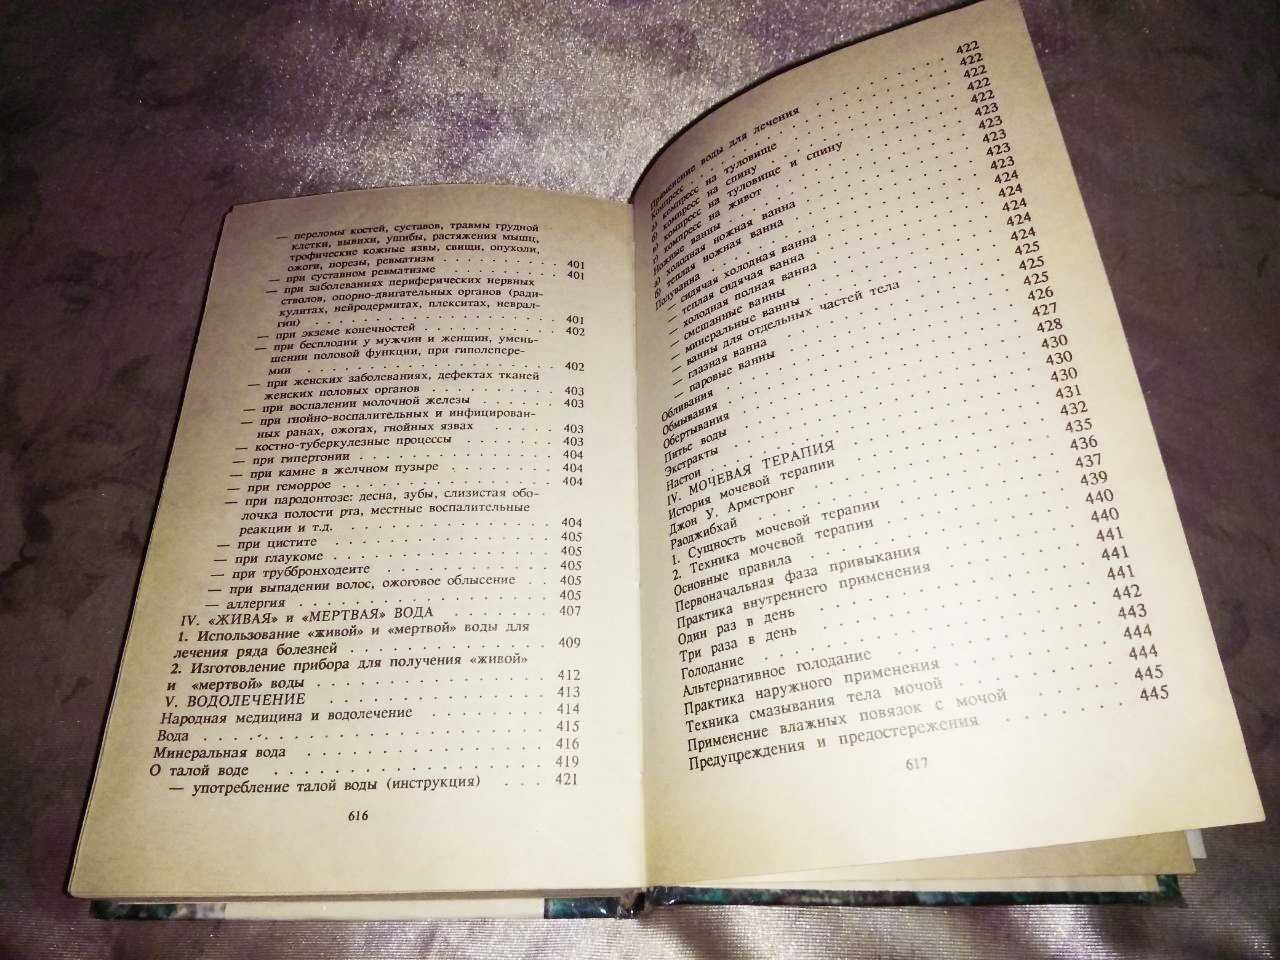 — переломы костей, суставов, травмы грудной
клетки, вывихи, ушибы, растяжения мышц,
трофические кожные язвы, свищи, опухоли,
ожоги, порезы, ревматизм . . . . . . . . 401
— при суставном ревматизме . . . . . . . . 401
— при заболеваниях периферических нервных
стволов, опорно-двигательных органов (ради-
кулитах, нейродермитах, плекситах, неврал-
гии) . . . . . . . . 401
— при экземе конечностей . . . . . . . . 402
— при бесплодии у мужчин и женщин, умень-
шении половой функции, при гиполепере-
мии . . . . . . . . 402
— при женских заболеваниях, дефектах тканей
женских половых органов . . . . . . . . 403
— при воспалении молочной железы . . . . . . . . 403
— при гнойно-воспалительных и инфицирован-
ных ранах, ожогах, гнойных язвах . . . . . 403
— костно-туберкулезные процессы . . . . . . . . 403
— при гипертонии . . . . . . . . 404
— при камне в желчном пузыре . . . . . . . . 404
— при геморрое . . . . . . . . 404
— при пародонтозе: десна, зубы, слизистая обо-
лочка полости рта, местные воспалительные
реакции и т.д. . . . . . . . . 404
— при цистите . . . . . . . . 405
— при глаукоме . . . . . . . . 405
— при труббронходеите . . . . . . . . 405
— при выпадении волос, ожоговое облысение . . . . 405
— аллергия . . . . . . . . 405
IV. «ЖИВАЯ» и «МЕРТВАЯ» ВОДА . . . . . . . . 407
1. Использование «живой» и «мертвой» воды для
лечения ряда болезней . . . . . . . . 409
2. Изготовление прибора для получения «живой»
и «мертвой» воды . . . . . . . . 412
V. ВОДОЛЕЧЕНИЕ . . . . . . . . 413
Народная медицина и водолечение . . . . . . . . 414
Вода . . . . . . . . 415
Минеральная вода . . . . . . . . 416
О талой воде . . . . . . . . 419
— употребление талой воды (инструкция) . . . 421
616
Применение воды для лечения . . . . . . . . 422
Компресс . . . . . . . . 422
а) компресс на туловище . . . . . . . . 422
б) компресс на спину . . . . . . . . 422
в) компресс на туловище и спину . . . . . . . . 422
г) компресс на живот . . . . . . . . 423
Ножные ванны . . . . . . . . 423
а) холодная ножная ванна . . . . . . . . 423
б) теплая ножная ванна . . . . . . . . 423
Полуванна . . . . . . . . 423
— сидячая холодная ванна . . . . . . . . 424
— теплая сидячая ванна . . . . . . . . 424
— холодная полная ванна . . . . . . . . 424
— смешанные ванны . . . . . . . . 424
— минеральные ванны . . . . . . . . 424
— ванны для отдельных частей тела . . . . . . . . 425
— глазная ванна . . . . . . . . 425
— паровые ванны . . . . . . . . 425
Обливания . . . . . . . . 426
Обмывания . . . . . . . . 427
Обертывания . . . . . . . . 428
Питье воды . . . . . . . . 430
Экстракты . . . . . . . . 430
Настои . . . . . . . . 430
IV. МОЧЕВАЯ ТЕРАПИЯ . . . . . . . . 431
История мочевой терапии . . . . . . . . 432
Джон У. Армстронг . . . . . . . . 435
Раоджибхай . . . . . . . . 436
1. Сущность мочевой терапии . . . . . . . . 437
2. Техника мочевой терапии . . . . . . . . 439
Основные правила . . . . . . . . 440
Первоначальная фаза привыкания . . . . . . . . 440
Практика внутреннего применения . . . . . . . . 441
Один раз в день . . . . . . . . 441
Три раза в день . . . . . . . . 441
Голодание . . . . . . . . 442
Альтернативное голодание . . . . . . . . 443
Практика наружного применения . . . . . . . . 444
Техника смазывания тела мочой . . . . . . . . 444
Применение влажных повязок с мочой . . . . . . . . 445
Предупреждения и предостережения . . . . . . . . 445
617